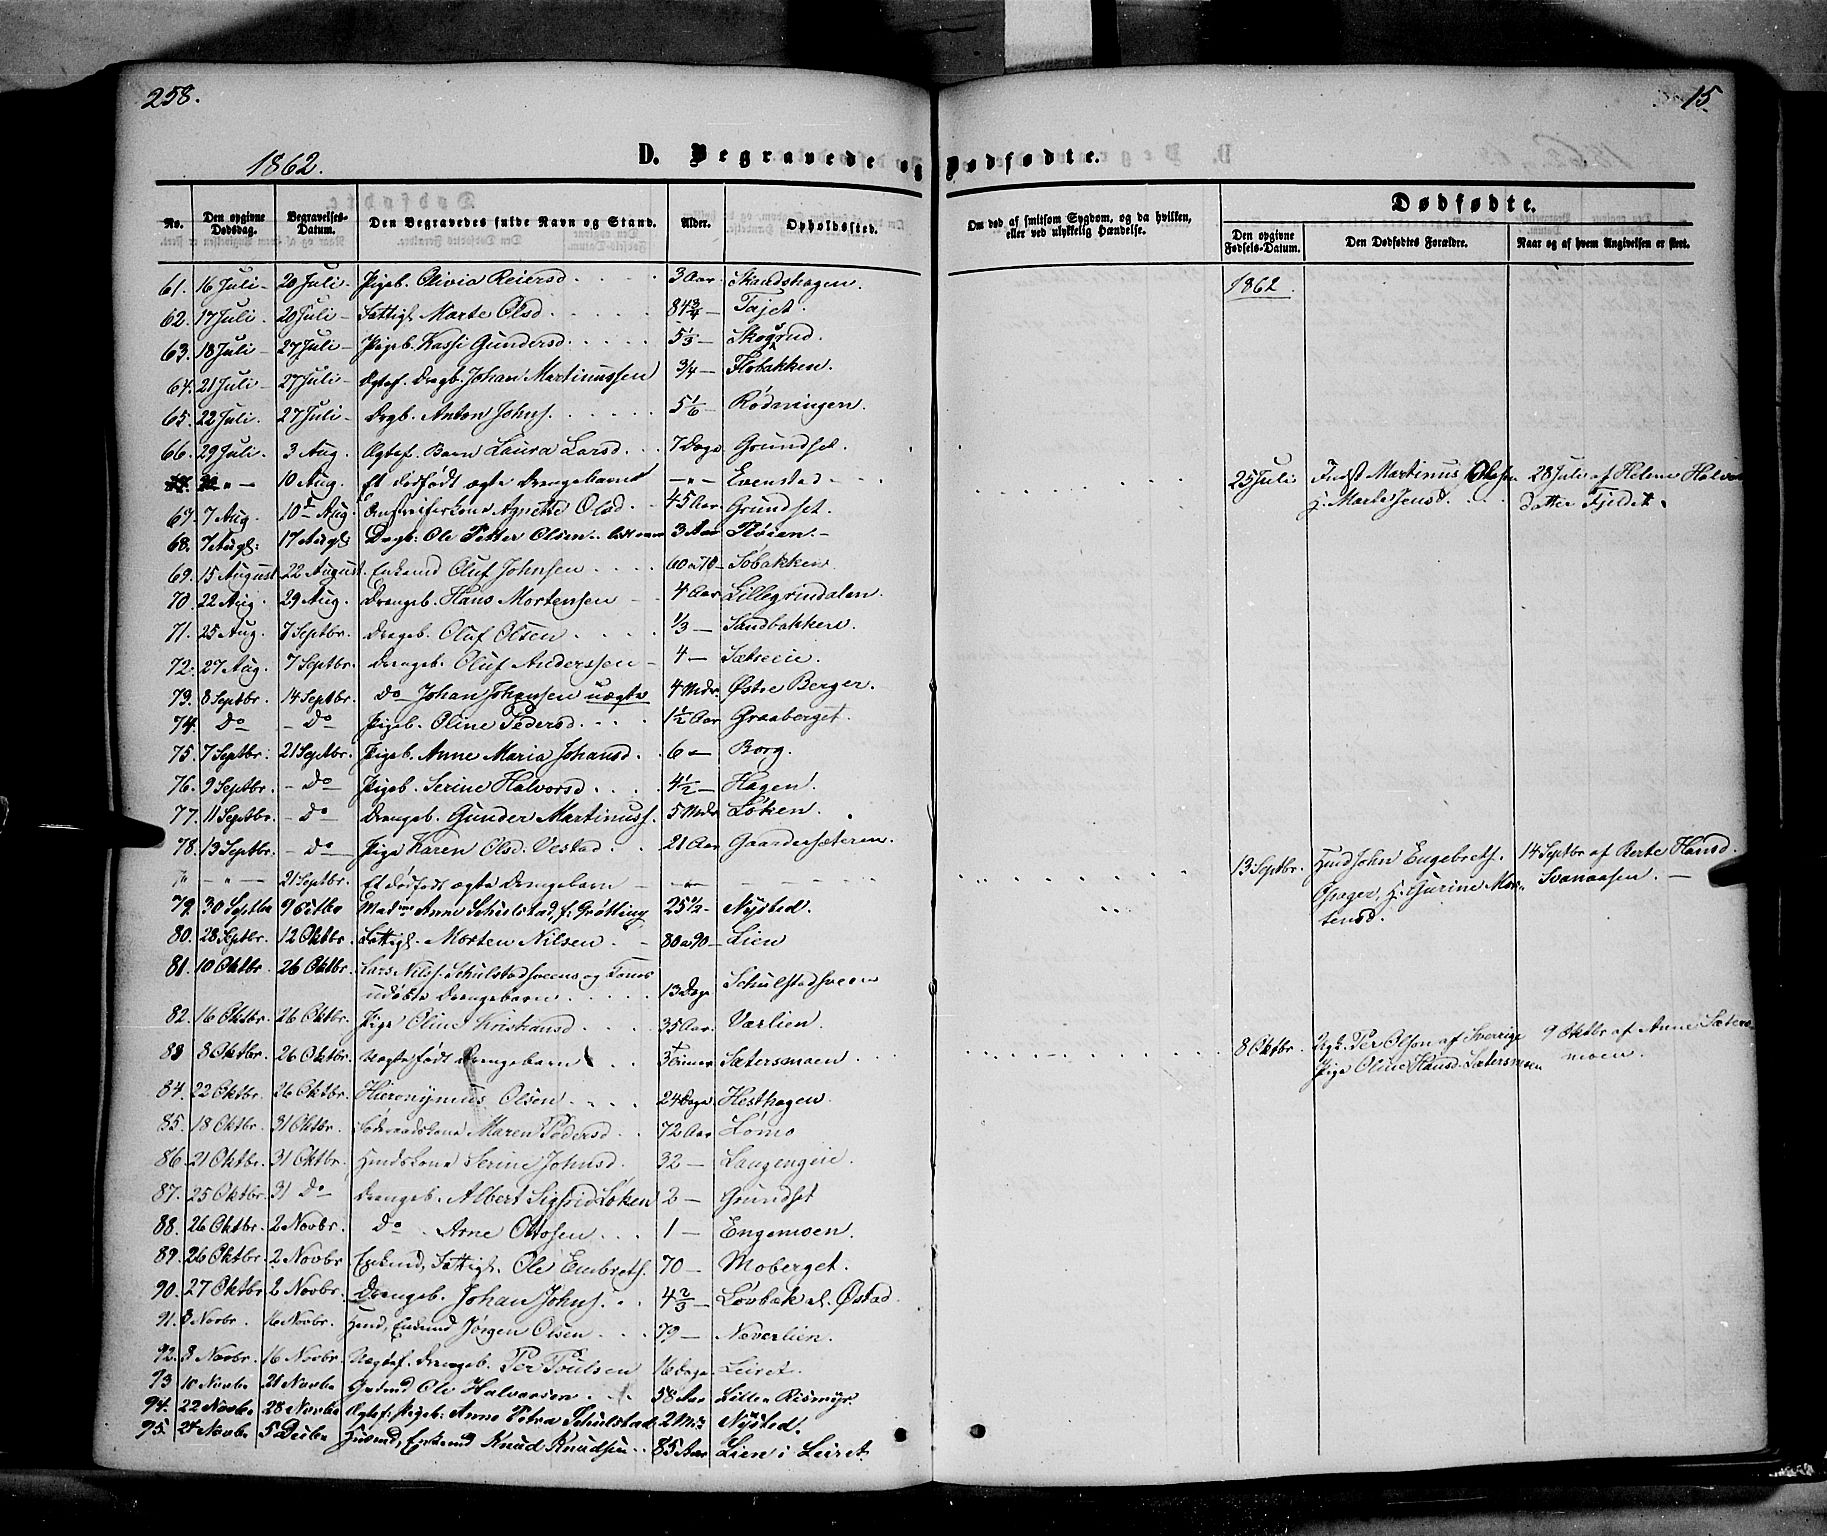 258.
15
1862.
D. Begravede og Dødfødte.
Dødfødte.
No.
Den opgivne Dødsdag.
Begravelses-Datum.
Den Begravedes fulde Navn og Stand.
Alder.
Opholdssted.
Om død af smitsom Sygdom, og da hvilken, eller ved ulykkelig Hændelse.
Den opgivne Fødsels-Datum.
Den Dødfødtes Forældre.
Naar og af hvem Angivelsen er skeet.
1862.
61. 16 Juli - 20 Juli - Pigeb. Olivia Reiersd 3 Aar Strandshagen.
62. 17 Juli. 20 Juli - Fattigl Marte Olsd 84 3/4 - Tajet.
63. 18 Juli - 27 Juli - Pigeb. Kassi Gundersd 5 1/3 - Skogrud.
64. 21 Juli - 27 Juli - Ægtef. Drgb. Johan Martinussen 3/4 - Flobakken.
65. 22 Juli. 27 Juli - Drgb. Anton Johns. 5 1/6 - Rødningen.
66. 29 Juli. 3 Aug. Ægtef. Barn Laura Larsd. 7 Dage Grundset.
" - 10 Aug. Et dødfødt ægte Drengebarn - " - Evenstad - 25 Juli Indst Martinus Olsen 28 Juli af Helene Halvors
H. Marte Jensd. datter Fjeldet.
67. 7 Aug. 10 Aug. Agnethe Olsd. 45 Aar Grundset.
68. 7 Augt: 17 Augt Drgb: Ole Petter Olsen 3 Aar Fløien. -
69. 15 August 22 August. Enkemd Oluf Johnsen 60 a 70 - Søbakken
70. 22 Aug. 29 Aug. Drengeb. Hans Mortensen 4 Aar Lillegrindalen.
71. 25 Aug. 7 Septbr. Drengeb. Oluf Olsen 1/3 - Sandbakken.
72. 27 Aug. 7 Septbr. Drengeb. Oluf Anderssen - 4 - Sætreeie.
73. 8 Septbr. 14 Septbr. Do Johan Johansen uægte 4 Mdr. Østre Berger.
74. Do - Do Pigeb. Oline Pedersd. 1 1/2 Aar Graaberget.
75. 7 Septbr. 21 Septbr. Pigeb. Anne Maria Johansd. 6 - Borg.
76. 9 Septbr. - Do - Pigeb. Serine Halvorsd. 4 1/2 - Hagen.
77. 11 Septbr. - Do Drengeb. Gunder Martinuss. 5 Mdr. Løken.
78. 13 Septbr. - Do - Pige Karen Olsd. Vestad. 21 Aar Gaardersæteren.
" - " - 21 Septbr. Et dødfødt ægte Drengebarn - 13 Septbr. Husmd John Engebrets. 14 Septbr af Berte Hansd.
Opager, H. Gurine Mor- Svanaasen. -
tensd.
79. 30 Septbr 9 Octbr Madme Anne Schulstad, f. Grøtting 25 1/2 - Nysted.
80. 28 Septbr. 12 Oktbr. Fattigl. Morten Nilsen. 80 a 90 - Lien
81. 10 Oktbr. 26 Oktbr. Lars Nilss. Schulstadsveens og Kones
udøbte Drengebarn 13 Dage Schulstadsveen
82. 16 Oktbr. 26 Oktbr. Pige Oline Kristiansd. 35 Aar. Vårlien.
83 8 Oktbr. 26 Oktbr. Uægte født Drengebarn 3 Timer Sætersmoen. 8 Oktbr. Ugk. Per Olson af Sverrige 9 Oktbr af Anne Sæters-
Pige Oline Hansd. Sætersmoen moen.
84. 22 Oktbr. 26 Oktbr. Hieronymus Olsen 24 Dage Hesthagen.
85. 18 Oktbr. 31 Oktbr. Føderaadskone Maren Pedersd. 72 Aar Lømo
86. 21 Oktbr. 31 Oktbr. Husmdskone Serine Johnsd. 32 - Langengeie.
87. 25 Oktbr. 31 Do Drengeb. Albert Sigfrid Løken 2 - Grundset
88. 26 Oktbr. 2 Novbr. Do Arne Ottosen 1 - Engemoen.
89. 26 Oktbr. 2 Novbr Enkemd, Fattigl. Ole Embrets. 70 - Moberget.
90. 27 Oktbr. 2 Novbr. Drengeb. Johan Johns. 4 2/3 - Løvbæk al. Østad.
91. 8 Novbr. 16 Novbr. Husmd, Enkemd Jørgen Olsen 79 - Neverlien.
92. 8 Novbr. 16 Novbr. Uægtef. Drengeb. Per Poulsen 16 Dage Leiret.
93 10 Novbr 21 Novbr Gaardmd Ole Halvorsen 58 Aar Lille Rismyr.
94. 22 Novbr 28 Novbr Ægtef: Pigeb: Anne Petra Schulstad. 2 Mdr Nysted.
95. 24 Novbr 5 Decbr Husmd, Enkemd Knud Knudsen 85 Aar Lien i Leiret.